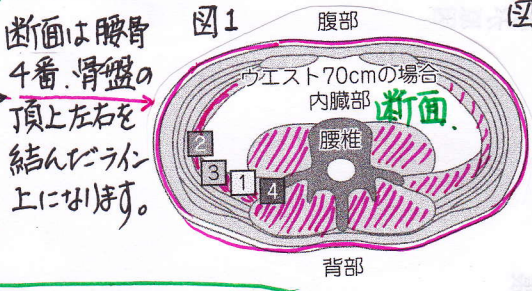 断面は腰骨
4番.骨盤の
頂上左右を
結んだライン
上になります。
図1
腹部
ウエスト70cmの場合
内臓部
断面.
腰椎
2
3
1
4
背部